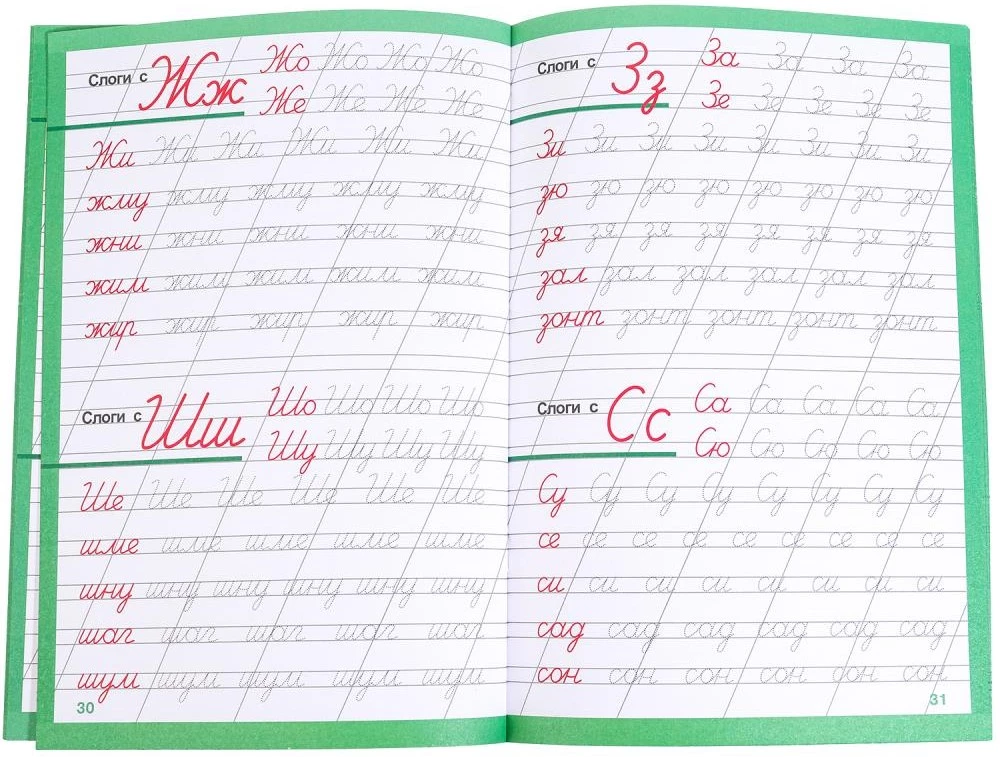 Слоги с Жж Жо Жо Жо Жо
Же Же Же Же
Жи Жи Жи Жи Жи Жи
жму жму жму жму жму
жни жни жни жни жни
жим жим жим жим жим
жир жир жир жир жир
Слоги с Шш Шо Шо Шо Шо
Шу Шу Шу Шу
Ше Ше Ше Ше Ше Ше
шме шме шме шме шме
шну шну шну шну шну шну
шаг шаг шаг шаг шаг
шум шум шум шум шум
30
Слоги с Зз За За За За
Зе Зе Зе Зе Зе
Зи Зи Зи Зи Зи Зи Зи Зи
зю зю зю зю зю зю зю зю
зя зя зя зя зя зя зя зя
зал зал зал зал зал зал
зонт зонт зонт зонт зонт
Слоги с Сс Са Са Са Са Са
Сю Сю Сю Сю Сю
Су Су Су Су Су Су Су Су
се се се се се се се се се
си си си си си си си си
сад сад сад сад сад сад
сон сон сон сон сон сон
31